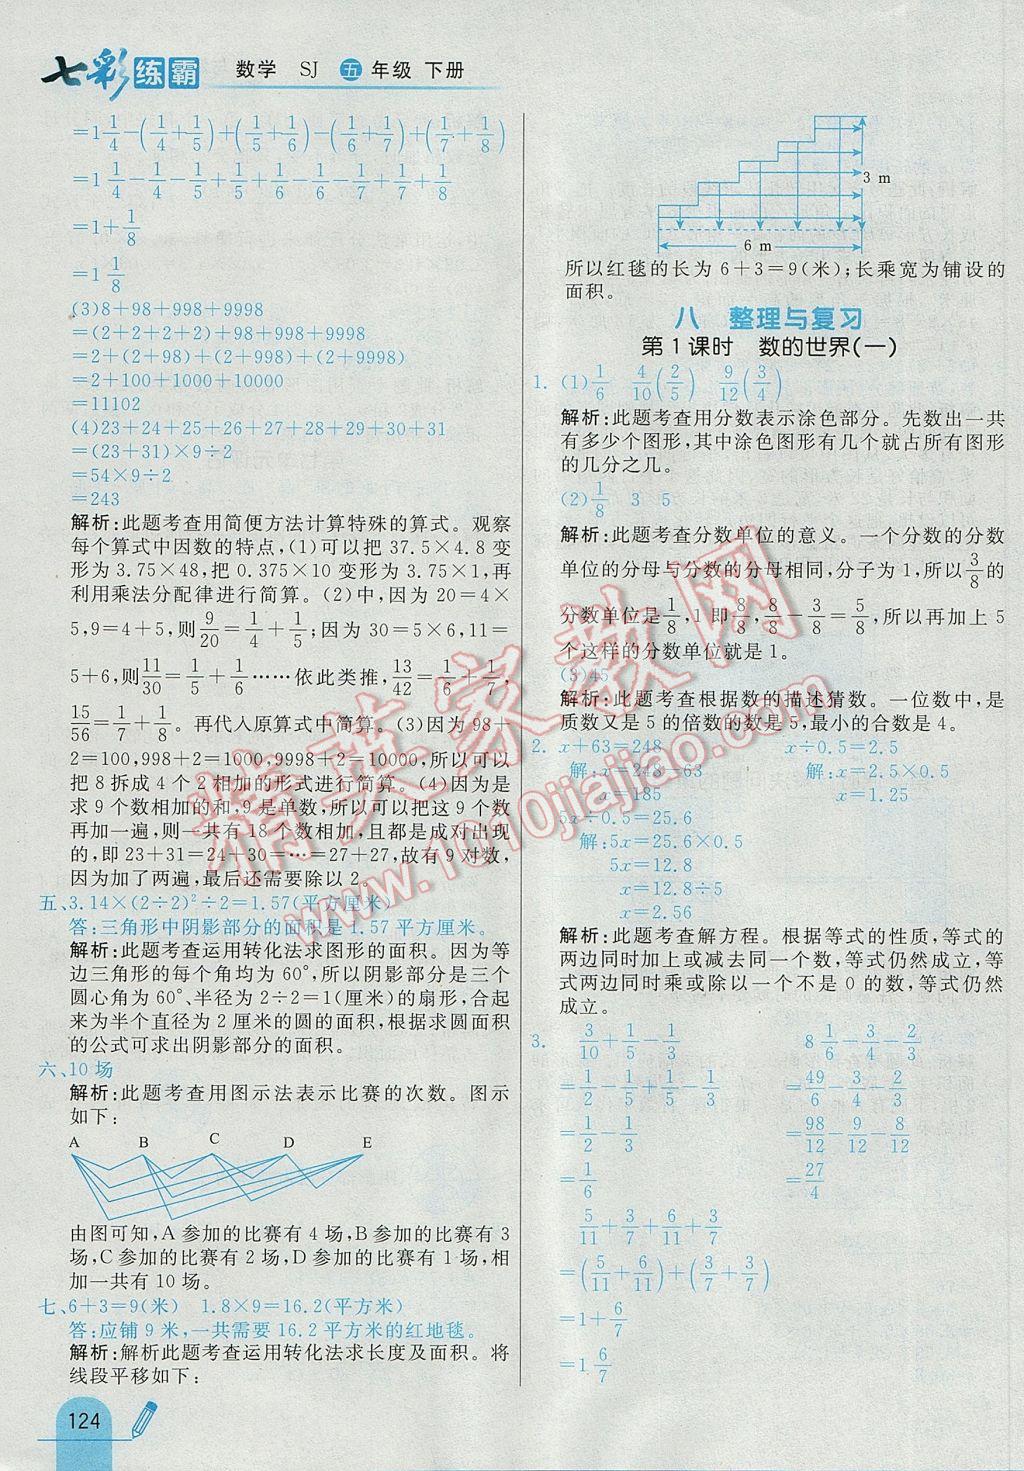 七彩练霸 数学 SJ 五年级 下册
=1 1/4-(1/4+1/5)+(1/5+1/6)-(1/6+1/7)+(1/7+1/8)
=1 1/4-1/4-1/5+1/5+1/6-1/6-1/7+1/7+1/8
=1+1/8
=1 1/8
(3)8+98+998+9998
=(2+2+2+2)+98+998+9998
=2+(2+98)+(2+998)+(2+9998)
=2+100+1000+10000
=11102
(4)23+24+25+26+27+28+29+30+31
=(23+31)×9÷2
=54×9÷2
=243
解析:此题考查用简便方法计算特殊的算式。观察
每个算式中因数的特点,(1)可以把 37.5×4.8 变
形为 3.75×48,把 0.375×10 变形为 3.75×1,再
利用乘法分配律进行简算。(2)中,因为 20=4×
5,9=4+5,则9/20=1/4+1/5;因为 30=5×6,11=
5+6,则11/30=1/5+1/6……依此类推,13/42=1/6+1/7,
15/56=1/7+1/8。再代入原算式中简算。(3)因为 98+
2=100,998+2=1000,9998+2=10000,所以可以
把 8 拆成 4 个 2 相加的形式进行简算。(4)因为是
求 9 个数相加的和,9 是单数,所以可以把这 9 个数
再加一遍,则一共有 18 个数相加,且都是成对出现
的,即 23+31=24+30=…=27+27,故有 9 对数,
因为加了两遍,最后还需要除以 2。
五、3.14×(2÷2)²÷2=1.57(平方厘米)
答:三角形中阴影部分的面积是 1.57 平方厘米。
解析:此题考查运用转化法求图形的面积。因为等
边三角形的每个角均为 60°,所以阴影部分是三个
圆心角为 60°、半径为 2÷2=1(厘米)的扇形,合起
来为半个直径为 2 厘米的圆的面积,根据求圆面积
的公式可求出阴影部分的面积。
六、10 场
解析:此题考查用图示法表示比赛的次数。图示
如下:
A B C D E
由图可知,A 参加的比赛有 4 场,B 参加的比赛有 3
场,C 参加的比赛有 2 场,D 参加的比赛有 1 场,相
加一共有 10 场。
七、6+3=9(米) 1.8×9=16.2(平方米)
答:应铺 9 米,一共需要 16.2 平方米的红地毯。
解析:解析此题考查运用转化法求长度及面积。将
线段平移如下:
124
3 m
6 m
所以红毯的长为 6+3=9(米);长乘宽为铺设的
面积。
八 整理与复习
第 1 课时 数的世界(一)
1. (1)1/6 4/10(2/5) 9/12(3/4)
解析:此题考查用分数表示涂色部分。先数出一共
有多少个图形,其中涂色图形有几个就占所有图形
的几分之几。
(2)1/8 3 5
解析:此题考查分数单位的意义。一个分数的分数
单位的分母与分数的分母相同,分子为 1,所以3/8的
分数单位是1/8,1 即8/8,8/8-3/8=5/8,所以再加上 5
个这样的分数单位就是 1。
(3)45
解析:此题考查根据数的描述猜数。一位数中,是
质数又是 5 的倍数的数是 5,最小的合数是 4。
2. x+63=248 x÷0.5=2.5
解:x=248-63 解:x=2.5×0.5
x=185 x=1.25
5x÷0.5=25.6
解:5x=25.6×0.5
5x=12.8
x=12.8÷5
x=2.56
解析:此题考查解方程。根据等式的性质,等式的
两边同时加上或减去同一个数,等式仍然成立,等
式两边同时乘或除以一个不是 0 的数,等式仍然
成立。
3. 3/10+1/5-1/3 8 1/6-3/4-2/3
=1/2-1/5+1/5-1/3 =49/6-3/4-2/3
=1/2-1/3 =98/12-9/12-8/12
=1/6 =27/4
5/11+3/7+6/11+3/7
=(5/11+6/11)+(3/7+3/7)
=1+6/7
=1 6/7
精英家教网
www.1010jiajiao.com